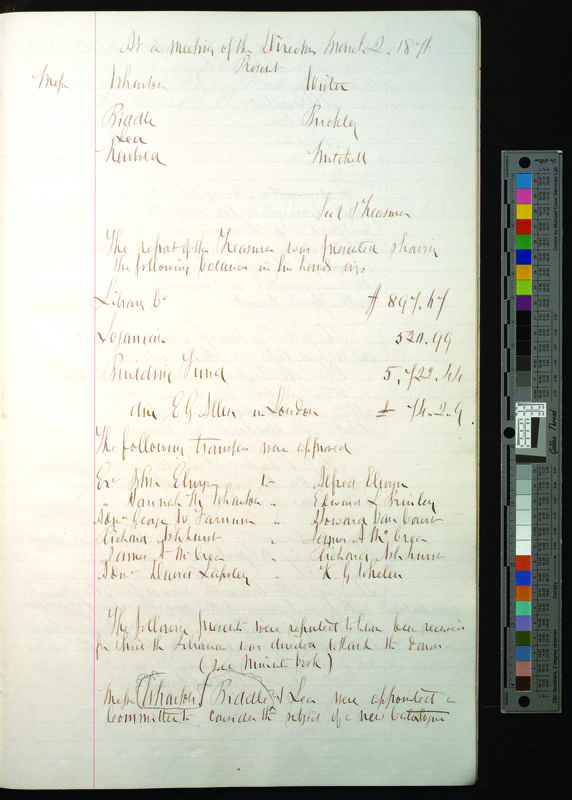 At a meeting of the Directors March 2. 1876
Present
Messrs Wharton Wister
Biddle Buckley
Lea
Newbold Mitchell
Sect & Treasurer
The report of the Treasurer was presented showing
the following balances in his hands viz.
Library Co $ 897.67
Loganian 520.99
Building Fund 5,722.44
due E G Allen in London £ 74-2-9
The following transfers were approved
Exr John Elwyn to Alfred Elwyn
" Hannah M Wharton " Edward L Brinley
Admr George W Farnum " Howard Van Court
Richard Ashhurst " James A McCrea
James A McCrea " Richard Ashhurst
Admr David Lapsley " K. G. Whelen
The following presents were reported to have been received
for which the Librarian was directed to thank the donors
(see Minute book)
Messrs Wharton Biddle & Lea were appointed a
Committee to consider the subject of a new Catalogue